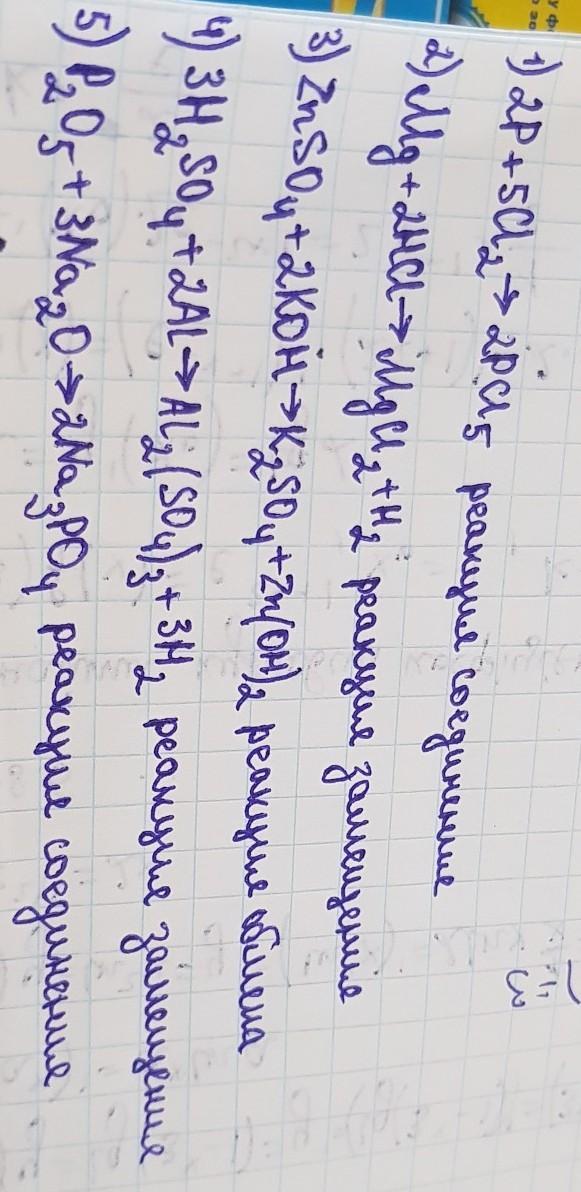 1) 2P + 5Cl₂ → 2PCl₅ реакция соединение
2) Mg + 2HCl → MgCl₂ + H₂ реакция замещение
3) ZnSO₄ + 2KOH → K₂SO₄ + Zn(OH)₂ реакция обмена
4) 3H₂SO₄ + 2Al → Al₂(SO₄)₃ + 3H₂ реакция замещения
5) P₂O₅ + 3Na₂O → 2Na₃PO₄ реакция соединения